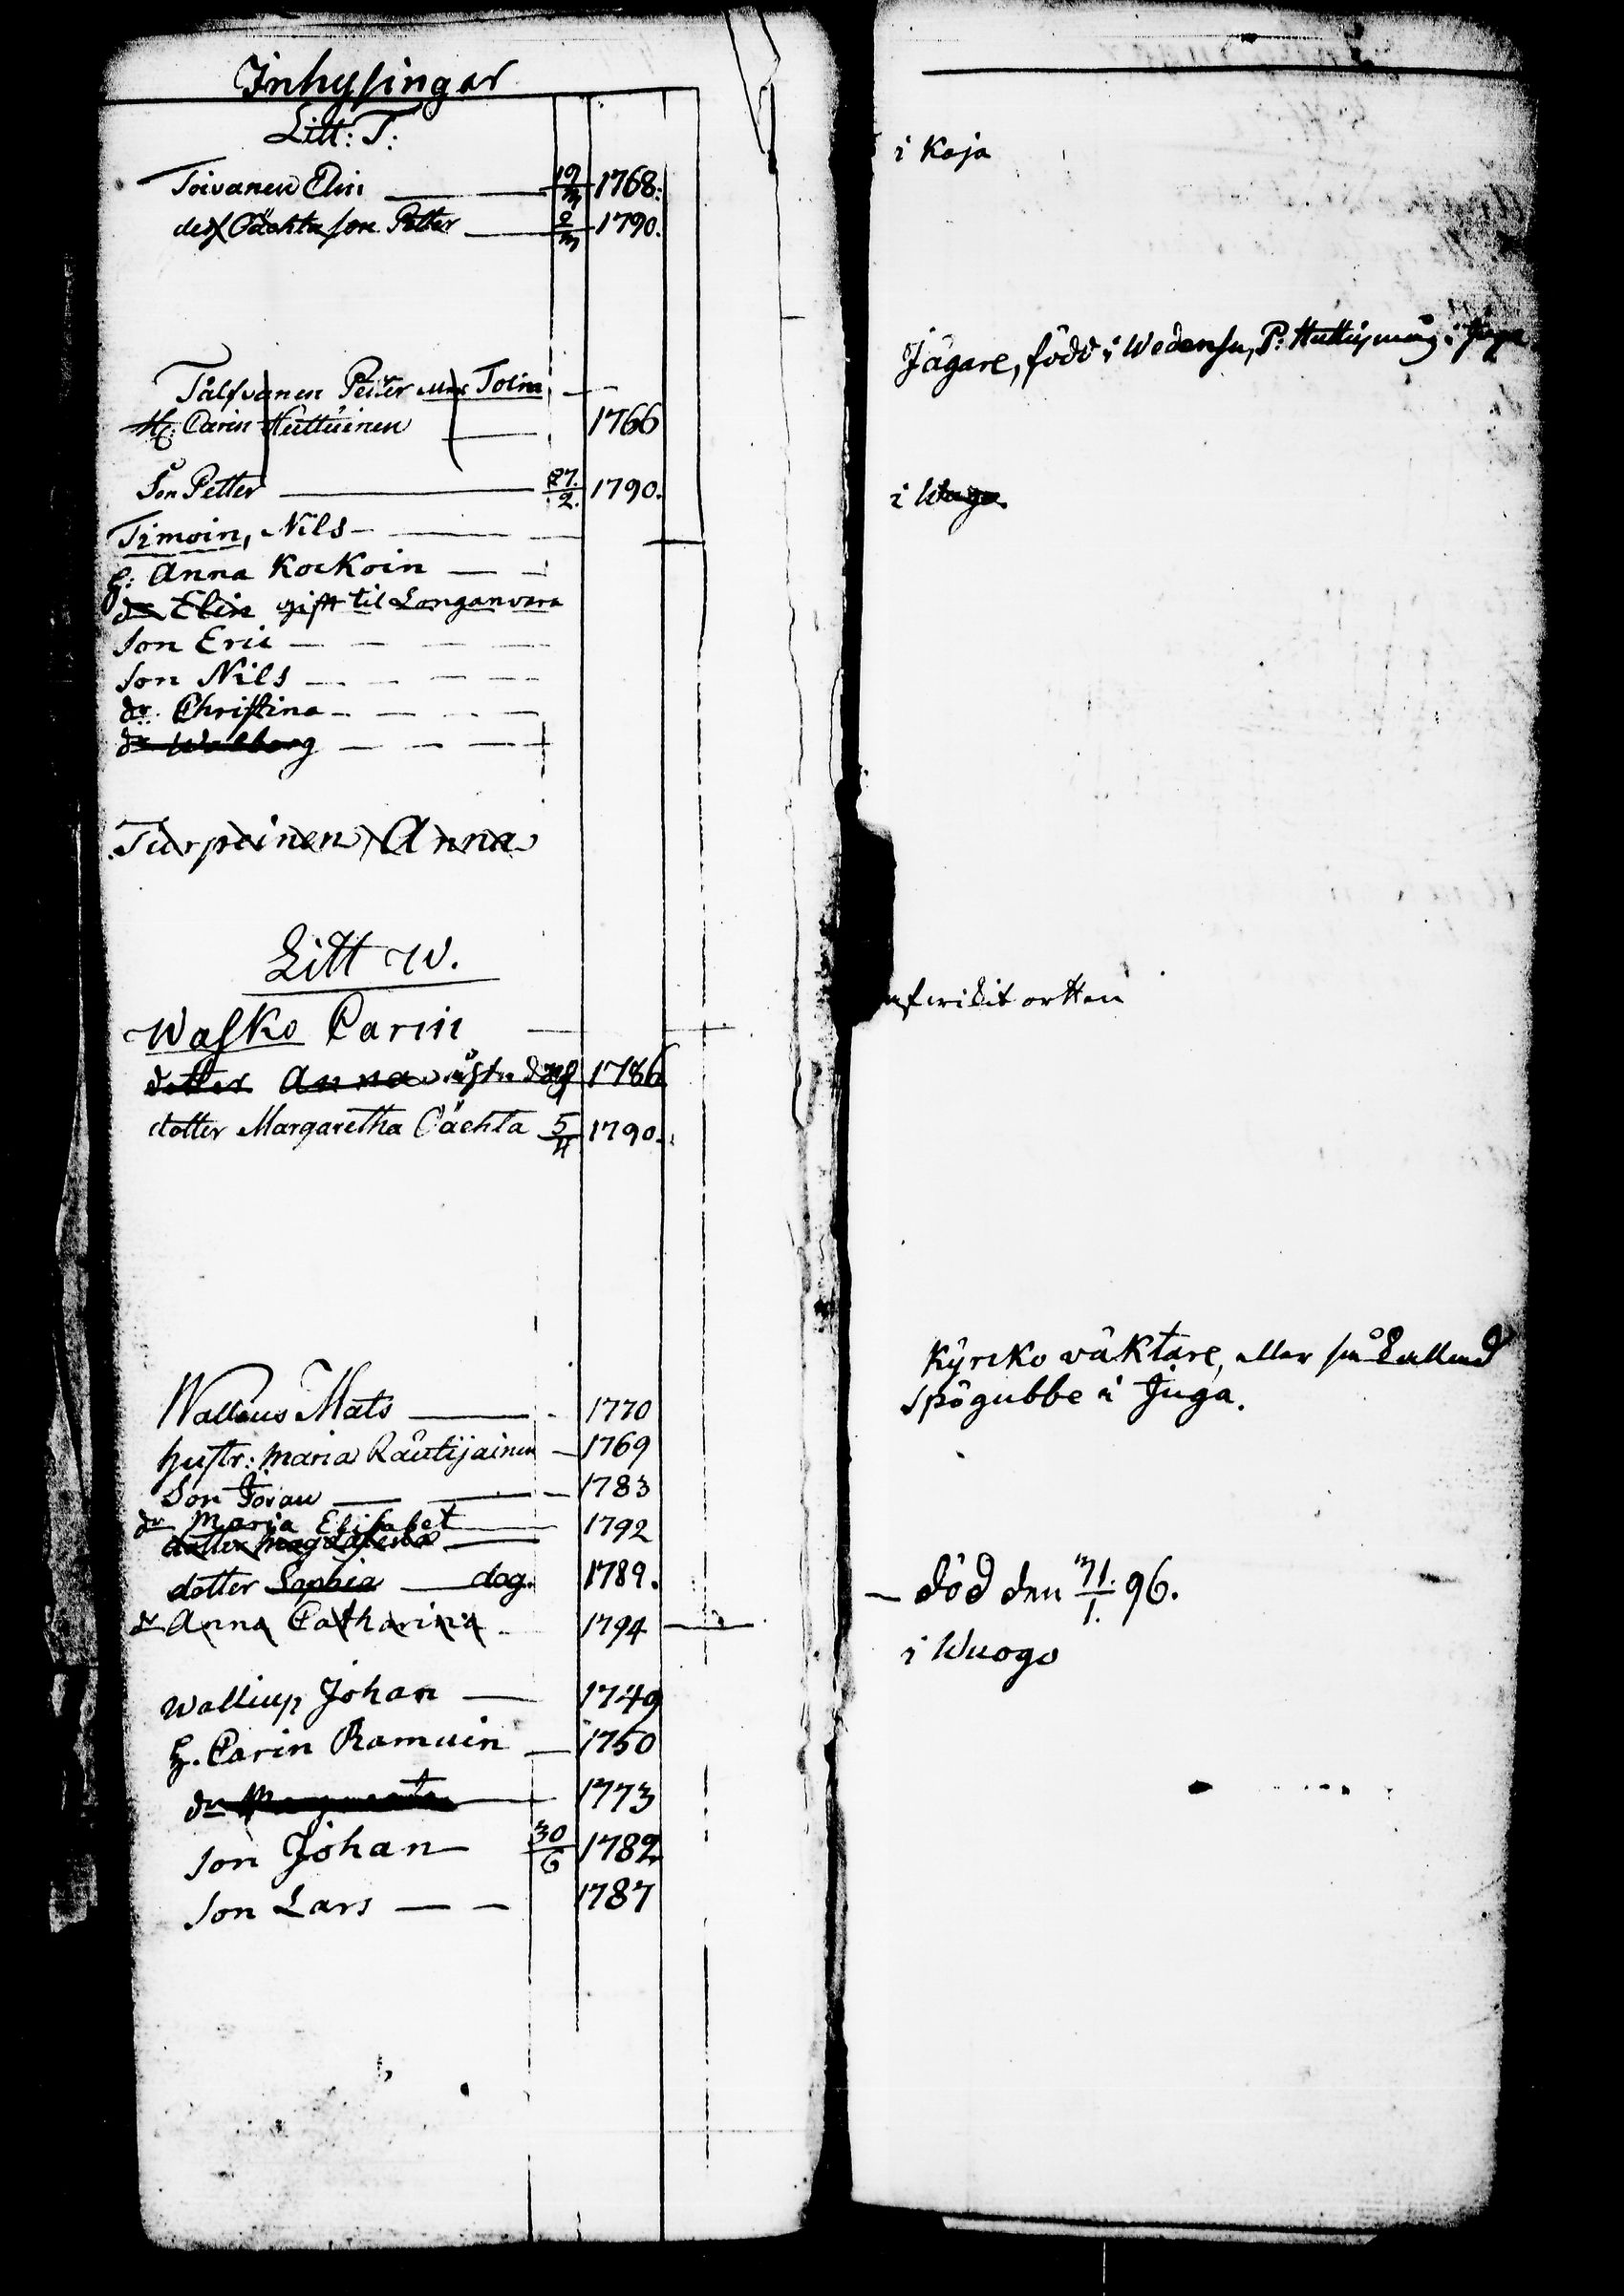 Inhysingar
Litt: T:
Toivanen Elin 19/3 1768.
dess Oächta son Petter 2/3 1790.
Talfvanen Petter Tolin
H: Carin Huttuinen 1766
Son Petter 27./2. 1790.
Timoin, Nils
h: Anna Kockoin
dr Elin gift til Longanvara
Son Eric
Son Nils
dr. Christina
dr Walborg
Turpeinen, Anna
Litt W.
Wasko Carin
dotter Anna 1786
dotter Margaretha Oächta 5/4 1790.
Wallius Mats 1770
hustr: Maria Rautijainen 1769
Son Jöran 1783
dr Maria Elisabet 1792
dotter Magdalena
dotter Sophia dog. 1789.
dr Anna Catharina 1794
Walliup Johan 1749
h. Carin Ramuin 1750
dr 1773
Son Johan 30/6 1782
Son Lars 1787
i Koja
Jägare, född i Wedensu, P:
i
ortten
Kyrcko väktare, eller så kallad
spögubbe i Juga.
död den 31./1. 96.
i Wuogo